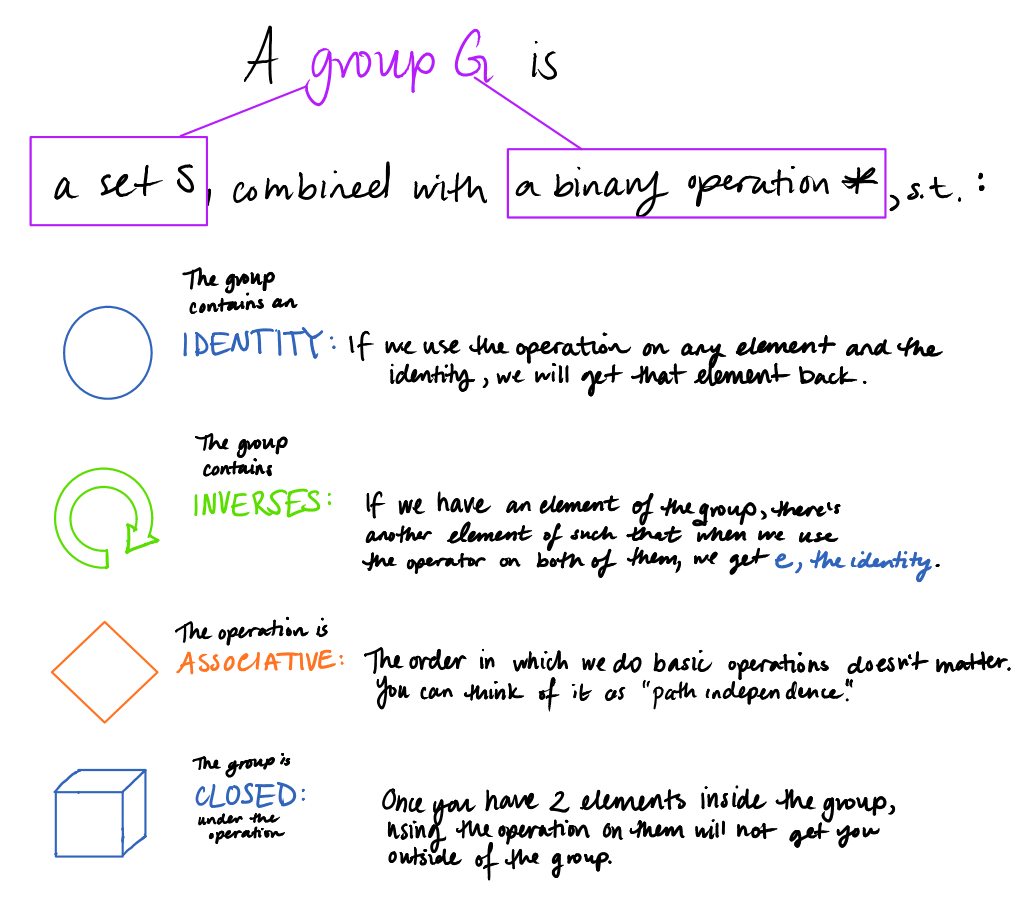 A group G is
a set S, combined with a binary operation *, s.t. :
The group
contains an
IDENTITY: If we use the operation on any element and the
identity, we will get that element back.
The group
contains
INVERSES: If we have an element of the group, there's
another element of such that when we use
the operator on both of them, we get e, the identity.
The operation is
ASSOCIATIVE: The order in which we do basic operations doesn't matter.
You can think of it as "path independence."
The group is
CLOSED: Once you have 2 elements inside the group,
under the
operation
using the operation on them will not get you
outside of the group.